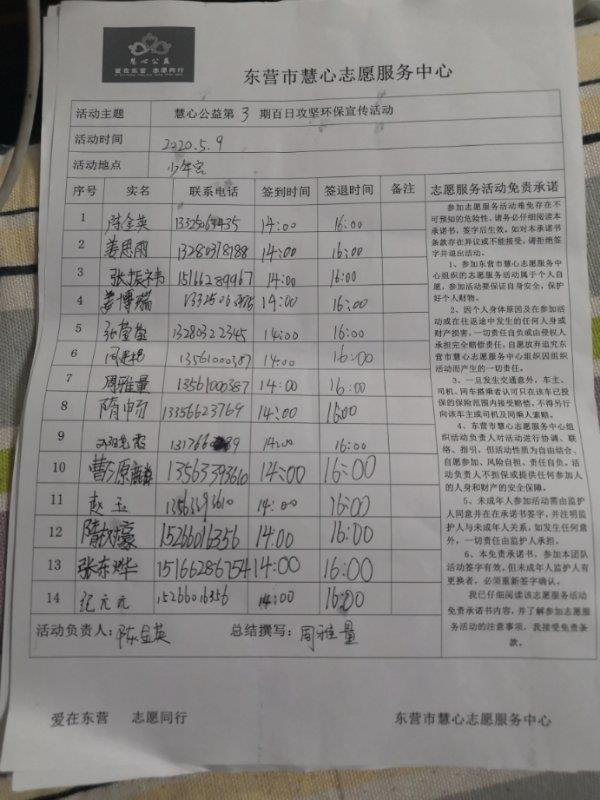 慧心公益
爱在东营 志愿同行
东营市慧心志愿服务中心
活动主题 慧心公益第 3 期百日攻坚环保宣传活动
活动时间 2020.5.9
活动地点 少年宫
序号 实名 联系电话 签到时间 签退时间 备注 志愿服务活动免责承诺
1 陈金英 14:00 16:00
2 姜思雨 13280318188 14:00 16:00
3 张振祎 15166289967 14:00 16:00
4 姜博瑞 14:00 16:00
5 13280322345 14:00 16:00
6 13561000387 14:00 16:00
7 周雅量 13561000387 14:00 16:00
8 隋申 13356623769 14:00 16:00
9 14:00 16:00
10 曹原 13563393610 14:00 16:00
11 赵玉 14:00 16:00
12 隋 15266016356 14:00 16:00
13 张东烨 15166286754 14:00 16:00
14 纪元元 15266016356 14:00 16:00
参加志愿服务活动难免存在不
可预知的危险性，请务必仔细阅读本
承诺书，签字后生效。如对本承诺书
条款存在异议或不能接受，请拒绝签
字并退出活动。
1、参加东营市慧心志愿服务中心
组织的志愿服务活动属于个人自
愿，参加活动要保证自身安全，保护
好个人财物。
2、因个人身体原因及在参加活
动或在往返途中发生的任何人身或
财产损害，一切责任自负或由侵权人
承担完全赔偿责任。自愿放弃追究东
营市慧心志愿服务中心组织因组织
活动而产生的一切责任。
3、一旦发生交通意外，车主、
司机、同车搭乘者认可只在该车已投
保的保险范围内接受赔偿，不得另行
向该车主或司机及同乘人索赔。
4、东营市慧心志愿服务中心组
织活动负责人对活动进行协调、联
络、指引，但活动性质为自由结合、
自愿参加、风险自担、责任自负。活
动负责人不担保或提供任何参加人
的人身和财产的安全保障。
5、未成年人参加活动需由监护
人同意并在在承诺书签字，并注明监
护人与未成年人关系，如发生任何意
外，一切责任由监护人承担。
6、本免责承诺书，参加本团队
活动签字有效，但未成年人监护人有
更换者，必须重新签字确认。
我已仔细阅读该志愿服务活动
免责承诺书内容，并了解参加志愿服
务活动的注意事项，我接受免责条
款。
活动负责人：陈金英 总结撰写：周雅量
爱在东营 志愿同行 东营市慧心志愿服务中心